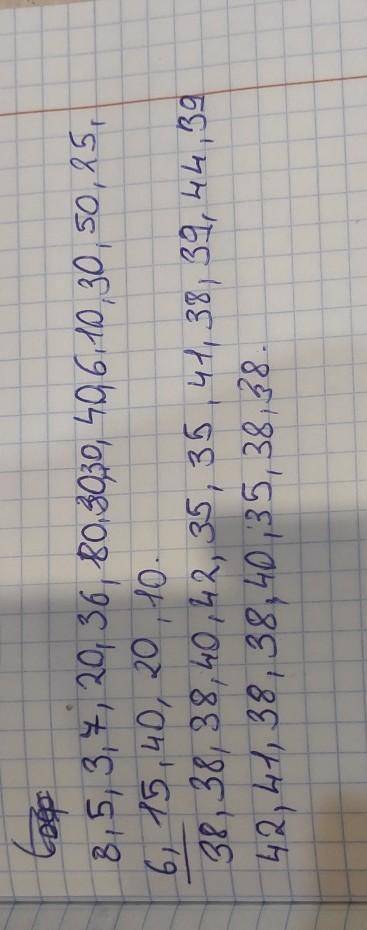 8,5,3,7,20,36,80,30,30,40,6,10,30,50,25,
6,15,40,20,10.
38,38,38,40,42,35,35,41,38,39,44,39
42,41,38,38,40,35,38,38.